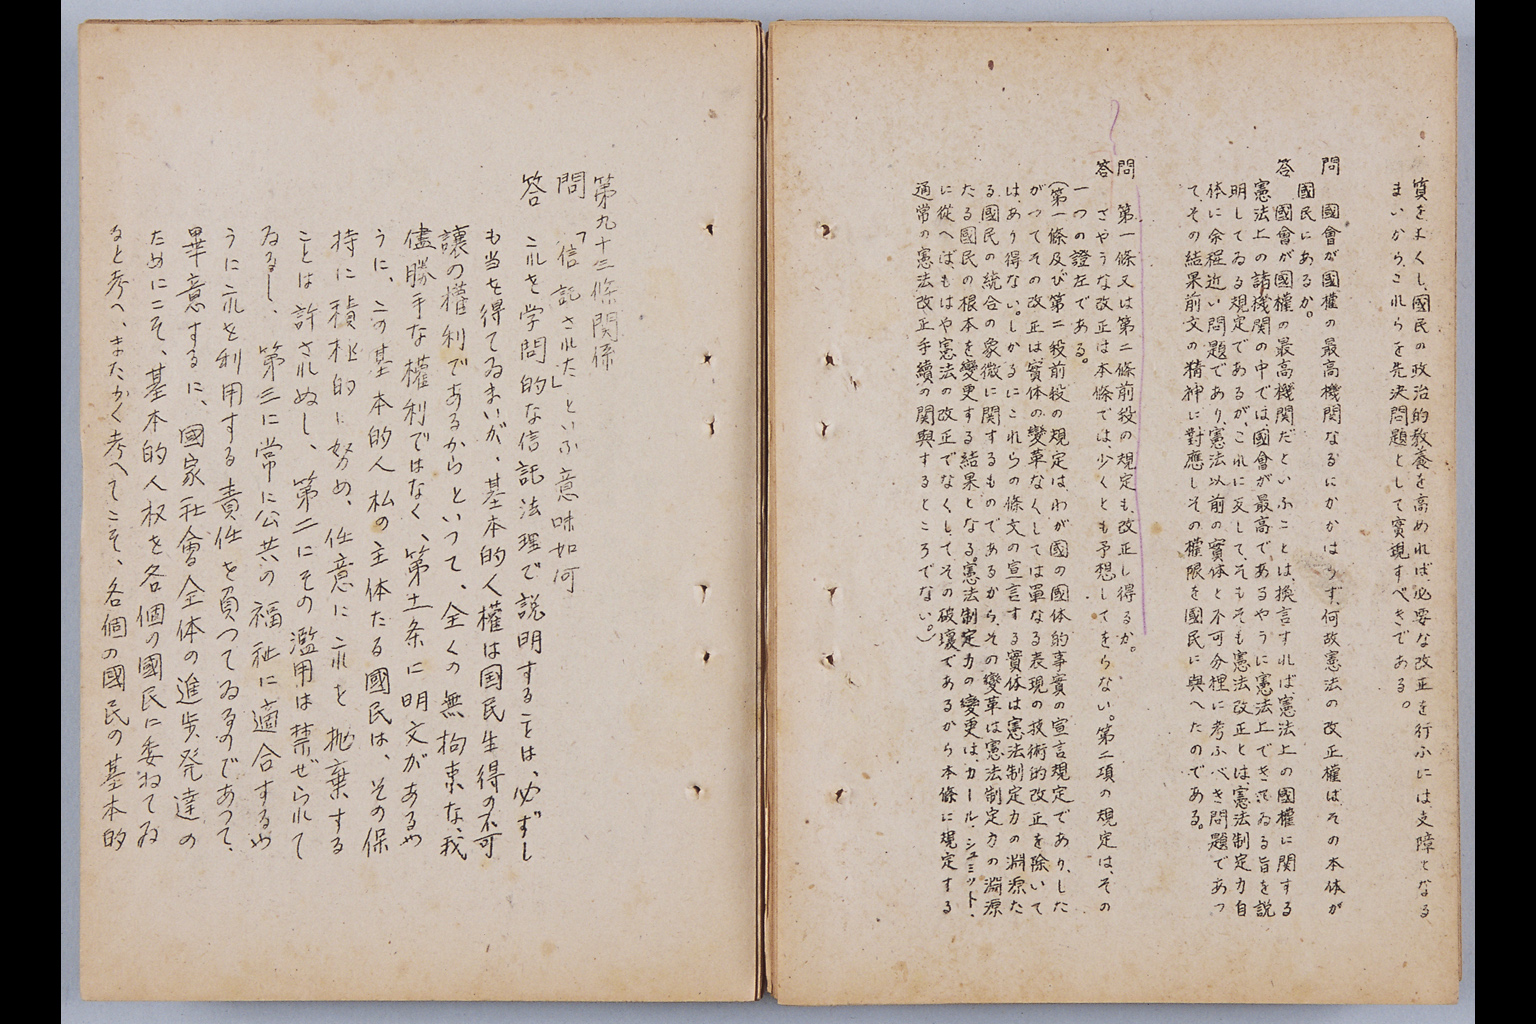 質をよくし、國民の政治的教養を高めれば、必要な改正を行ふには、支障となる
まいから、これらを先決問題として實現すべきである。
問　國會が國權の最高機関なるにかかはらず、何故憲法の改正權は、その本体が
國民にあるか。
答　國會が國權の最高機関だといふことは、換言すれば、憲法上の國權に関する
憲法上の諸機関の中では、國會が最高であるやうに憲法上できてゐる旨を説
明してゐる規定であるが、これに反して、そもそも憲法改正とは、憲法制定力自
体に余程近い問題であり、憲法以前の實体と不可分裡に考ふべき問題であつ
て、その結果前文の精神に對應しその權限を國民に與へたのである。
問　第一條又は第二條前段の規定も、改正し得るか。
答　さやうな改正は本條では、少くとも予想してをらない。第二項の規定は、その
一つの證左である。
（第一條及び第二段前段の規定は、わが國の國体的事實の宣言規定であり、した
がつてその改正は、實体の變革なくしては單なる表現の技術的改正を除いて
は、あり得ない。しかるにこれらの條文の宣言する實体は憲法制定力の淵源た
る國民の統合の象徴に関するものであるから、その變革は憲法制定力の淵源
たる國民の根本を變更する結果となる。憲法制定力の變更は、カール・シュミット・
に從へば、もはや憲法の改正でなくしてその破壞であるから本條に規定する
通常の憲法改正手續の関與するところでない。）
第九十三條関係
問　「信託された」といふ意味如何
答　これを学問的な信託法理で説明することは、必ずし
も当を得てゐまいが、基本的人權は国民生得の不可
讓の權利であるからといつて、全くの無拘束な、我
儘勝手な權利ではなく、第十一条に明文があるや
うに、この基本的人私の主体たる國民は、その保
持に積極的に努め、任意にこれを抛棄する
ことは許されぬし、第二にその濫用は禁ぜられて
ゐるし、第三に常に公共の福祉に適合するや
うにこれを利用する責任を負つてゐるのであつて、
畢意するに、國家社會全体の進歩発達の
ためにこそ、基本的人权を各個の國民に委ねてゐ
ると考へ、またかく考へてこそ、各個の國民の基本的